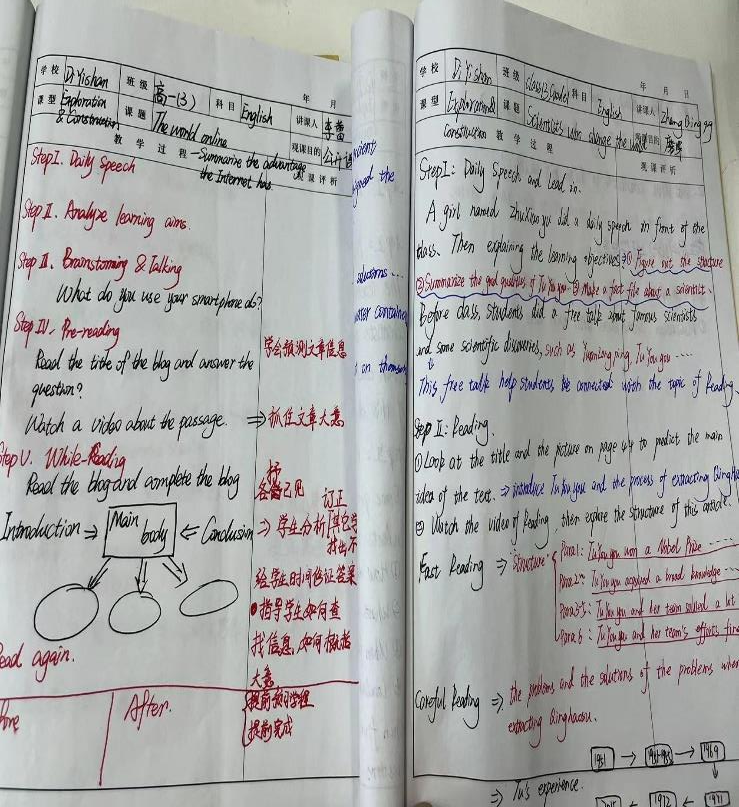 学校 Di Yishan 班级 高一(3) 科目 English 讲课人 李蕾 年 月
课型 Exploration & Construction 课题 The world online 观课目的 公开课
教学过程 - Summarize the advantage the Internet has. 观课评析
Step I. Daily Speech
Step II. Analyze learning aims.
Step III. Brainstorming & Talking
What do you use your smartphone do?
Step IV. Pre-reading
学会预测文章信息
Read the title of the blog and answer the
question?
Watch a video about the passage. ⇒ 抓住文章大意
Step V. While-Reading
Read the blog and complete the blog
各抒己见 订正
Introduction ⇒ Main body ⇐ Conclusion ⇒ 学生分析
给学生时间修证答案
指导学生如何查
找信息, 如何概括
大意
Read again.
After.
提前预习学程
提前完成
the
solutions ...
water contained
学校 Di Yishan 班级 科目 English 讲课人 Zhang 年 月 日
课型 Exploration and Construction 课题 Scientists who change the world 观课目的
教学过程 观课评析
Step I: Daily Speech and Lead in.
A girl named Zhu Xinyu did a daily speech in front of the
class. Then explaining the learning objectives: ① Figure out the structure
② Summarize the good qualities of Tu Youyou ③ Make a fact file about a scientist.
Before class, students did a free talk about famous scientists
and some scientific discoveries, such as Yuan Longping, Tu You you ....
This free talk help students be connected with the topic of Reading.
Step II: Reading.
① Look at the title and the picture on page 44 to predict the main
idea of the text. ⇒ introduce Tu Youyou and the process of extracting Qinghao
② Watch the video of Reading, then explore the structure of this article.
Fast Reading ⇒ Structure: Para1: Tu Youyou won a Nobel Prize ....
Para2: Tu Youyou acquired a broad knowledge ....
Para3-5: Tu Youyou and her team solved a lot
Para 6: Tu Youyou and her team's efforts
Careful Reading ⇒ the problems and the solutions of the problems when
extracting Qinghaosu.
1951 → → 1969
⇒ Tu's experience.
← 1972 ← 1971